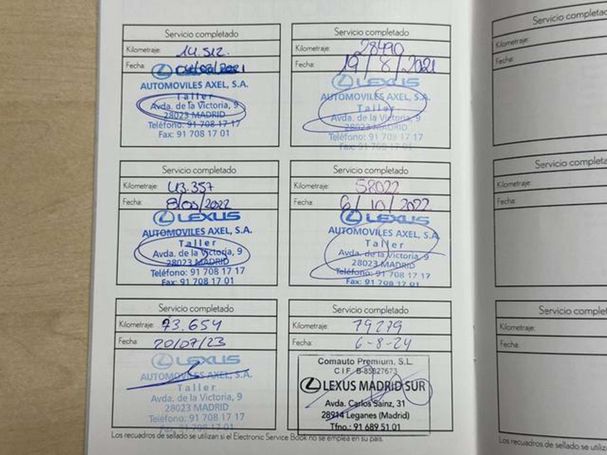 Servicio completado
Kilometraje: 14.512.
Fecha:
LEXUS
AUTOMOVILES AXEL, S.A.
Taller
Avda. de la Victoria, 9
28023 MADRID
Teléfono: 91 708 17 17
Fax: 91 708 17 01
Servicio completado
Kilometraje: 28490
Fecha: 19/8/2021
LEXUS
AUTOMOVILES AXEL, S.A.
Taller
Avda. de la Victoria, 9
28023 MADRID
Teléfono: 91 708 17 17
Fax: 91 708 17 01
Servicio completado
Kilometraje: 43.357
Fecha:
LEXUS
AUTOMOVILES AXEL, S.A.
Taller
Avda. de la Victoria, 9
28023 MADRID
Teléfono: 91 708 17 17
Fax: 91 708 17 01
Servicio completado
Kilometraje: 58022
Fecha: 6/10/2022
LEXUS
AUTOMOVILES AXEL, S.A.
Taller
Avda. de la Victoria, 9
28023 MADRID
Teléfono: 91 708 17 17
Fax: 91 708 17 01
Servicio completado
Kilometraje: 73.654
Fecha: 20/07/23
LEXUS
AUTOMOVILES AXEL, S.A.
Taller
Avda. de la Victoria, 9
28023 MADRID
Teléfono: 91 708 17 17
Fax: 91 708 17 01
Servicio completado
Kilometraje: 79279
Fecha: 6-8-24
Comauto Premium, S.L.
C I F B-85827673
LEXUS MADRID SUR
Avda. Carlos Sainz, 31
28914 Leganes (Madrid)
Tfno.: 91 689 51 01
Los recuadros de sellado se utilizan si el Electronic Service Book no se emplea en su país.
Servicio completado
Kilometraje:
Fecha:
Servicio completado
Kilometraje:
Fecha:
Servicio completado
Kilometraje:
Fecha:
Los recuadros de sellado se utilizan